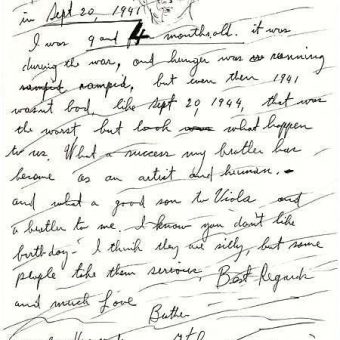 in Sept 20, 1941
I was 9 and 4 months old. it was
during the war, and hunger was running
ramped, but even then 1941
wasnt bad, like Sept 20, 1944, that was
the worst, but look what happen
to us. What a success my brother has
become as an artist and human.
and what a good son to Viola, and
a brother to me. I know you don't like
birthday - I think they are silly, but some
people take them serious, Best Regards
and much Love